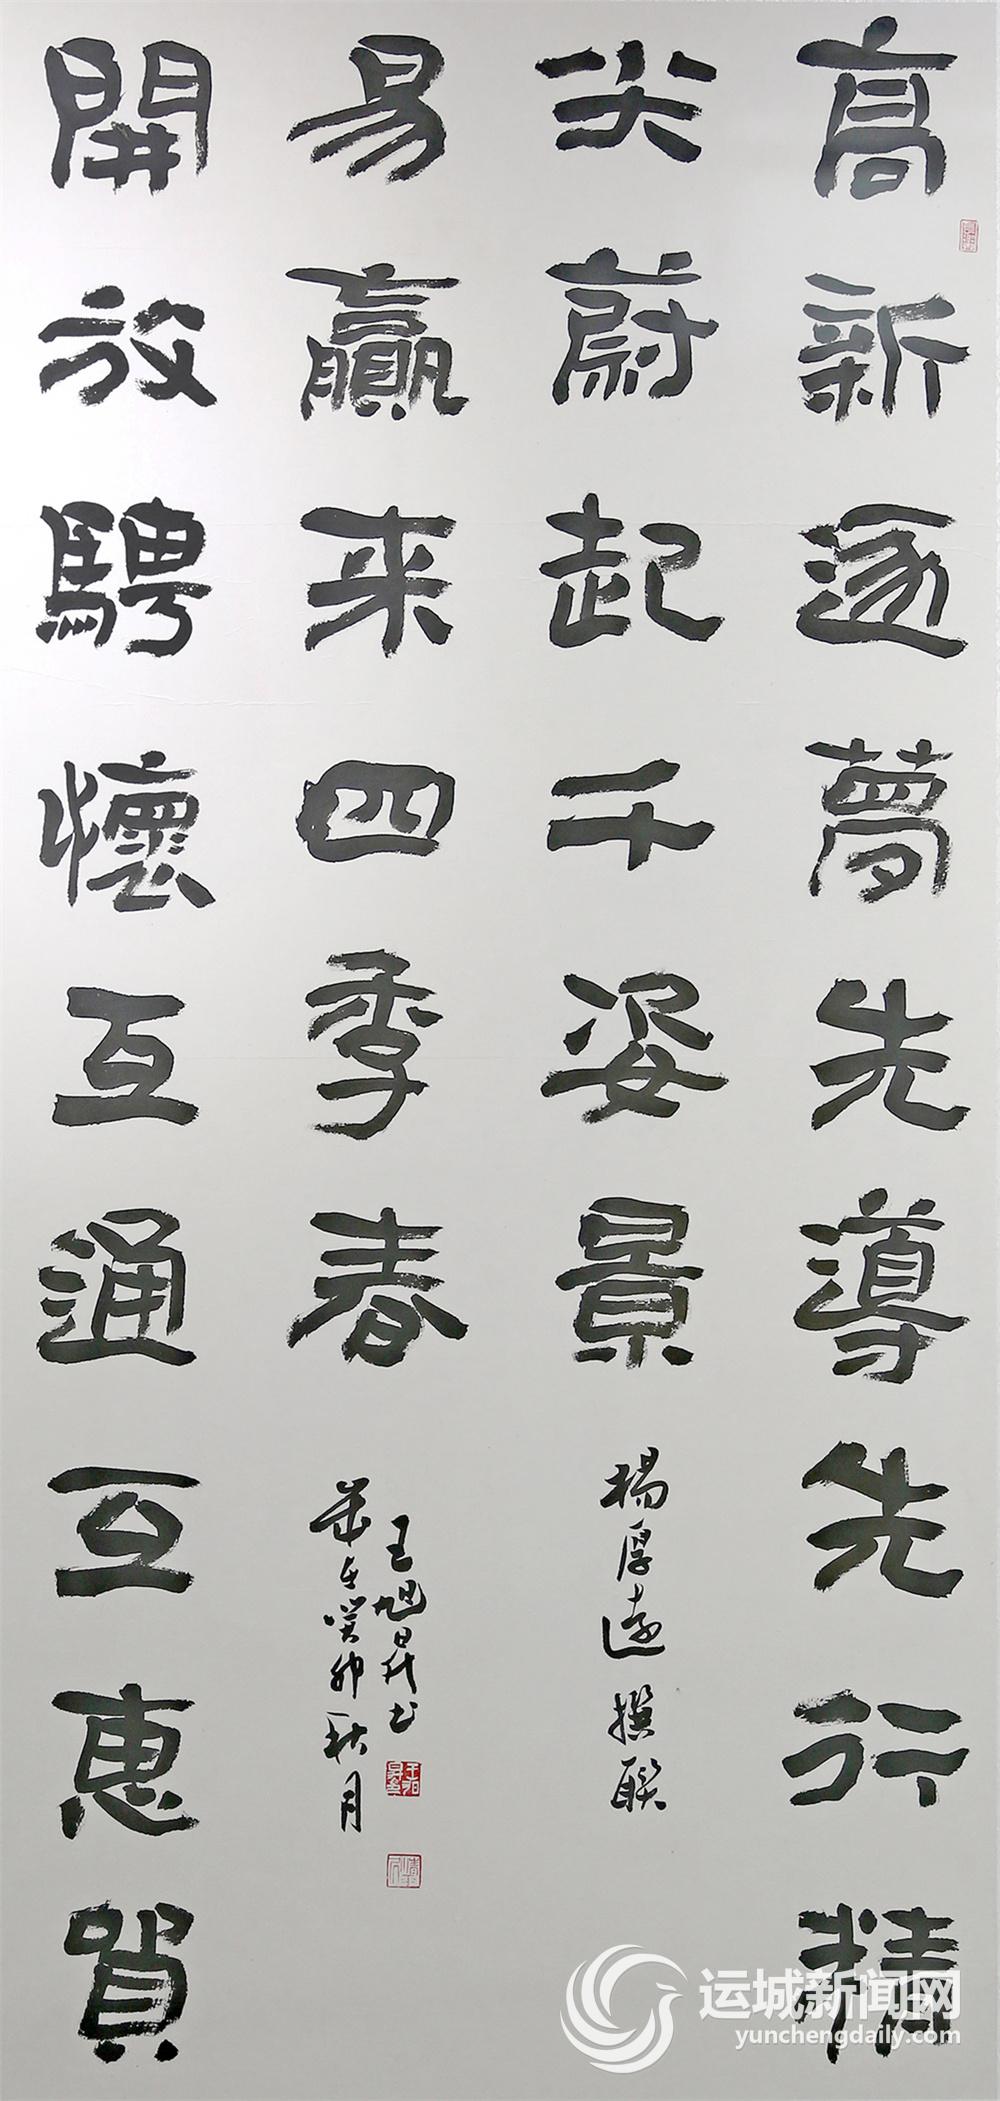 高新逐夢先導先行精
尖蔚起千姿景
楊厚遠撰聯
開放騁懷互通互惠貿
易贏来四季春
歲在癸卯秋月
王旭书
运城新闻网
yunchengdaily.com